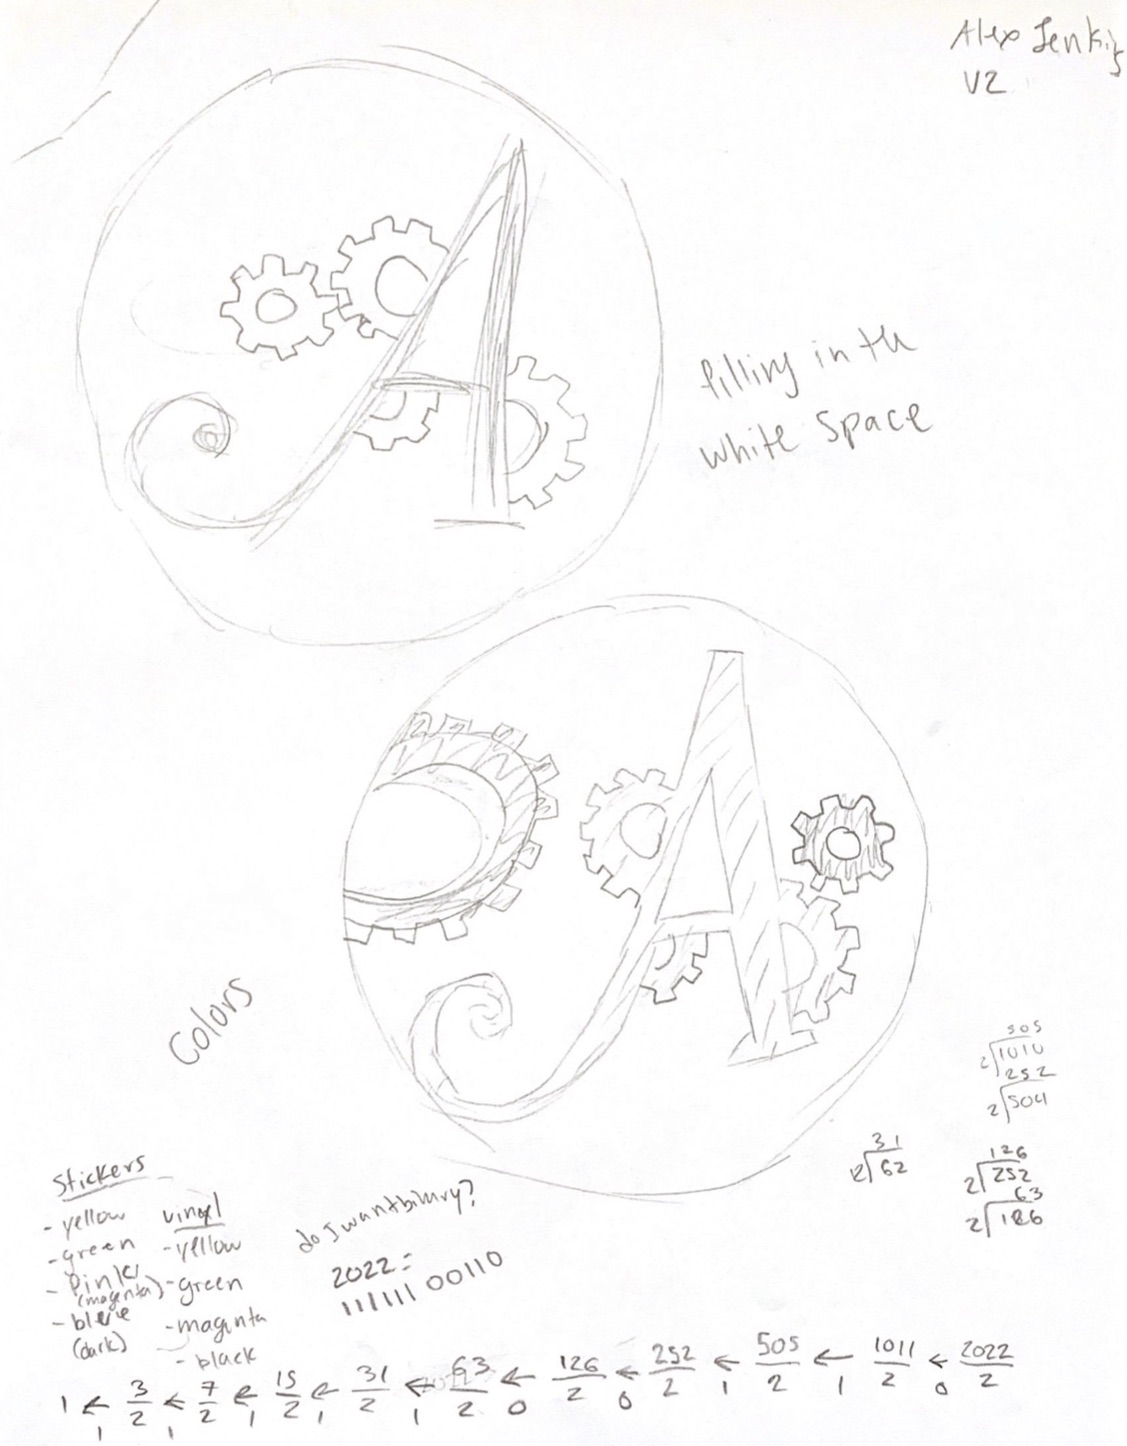 Alex Jenkins
V2
filling in th
white space
Colors
505
2 1010
252
2 504
31
2 62
126
2 252
63
2 126
Stickers
- yellow
- green
- Pink/
(magenta)
- blue
(dark)
vinyl
- yellow
- green
- magenta
- black
do I want binary?
2022 =
111111 00110
1 ← 3/2 ← 7/2 ← 15/2 ← 31/2 ← 63/2 ← 126/2 ← 252/2 ← 505/2 ← 1011/2 ← 2022/2
1 1 1 1 1 0 0 1 1 0